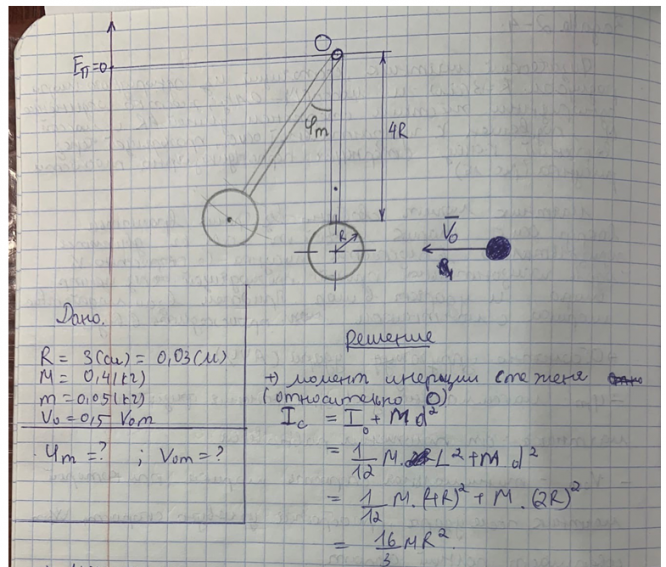 O
Eп=0
φm
4R
R
V̅₀
Дано.
R = 3(см) = 0,03(м)
M = 0,4(кг)
m = 0,05(кг)
V₀ = 0,5 V₀m
φm = ? ; V₀m = ?
Решение
+) момент инерции стеженя
(относительно O)
I_c = I₀ + Md²
= 1/12 M. L² + M d²
= 1/12 M. (4R)² + M. (2R)²
= 16/3 MR².